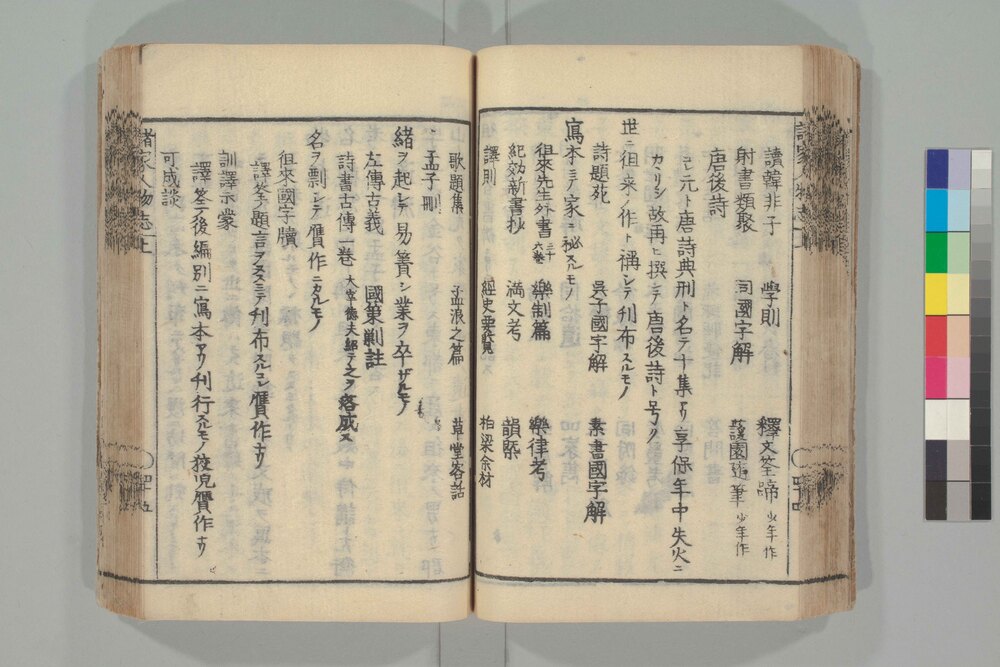 讀韓非子 學則 釋文筌蹄 少年作
射書類聚 同國字解 蘐園随筆 少年作
唐後詩
モト唐詩典刑ト名テ十集アリ享保年中失火ニ
カヽリシ故再ヒ撰シテ唐後詩ト号ク
世ニ徂来ノ作ト稱シテ刋布スルモノ
詩題苑 呉子國字解 素書國字解
寫本ニテ家ニ秘スルモノ
徂徠先生外書 二十六巻 樂制篇 樂律考
紀効新書抄 満文考 韻槩
譯則 經史要覧 柏梁余材
歌題集 孟浪之篇 草堂客話
孟子刪
緒ヲ起シテ易簀シ業ヲ卒ザルモノ
左傳古義 國策剿註
詩書古傳一巻 太宰德夫継テ之ヲ落成ス
名ヲ剽シテ贋作ニカヽルモノ
徂來國字牘
譯筌ノ題言ヲヌスミテ刋布スルコレ贋作ナリ
訓譯示蒙
譯筌ノ後編別ニ寫本アリ刋行スルモノ狡児贋作ナリ
可成談
諸家人物志上